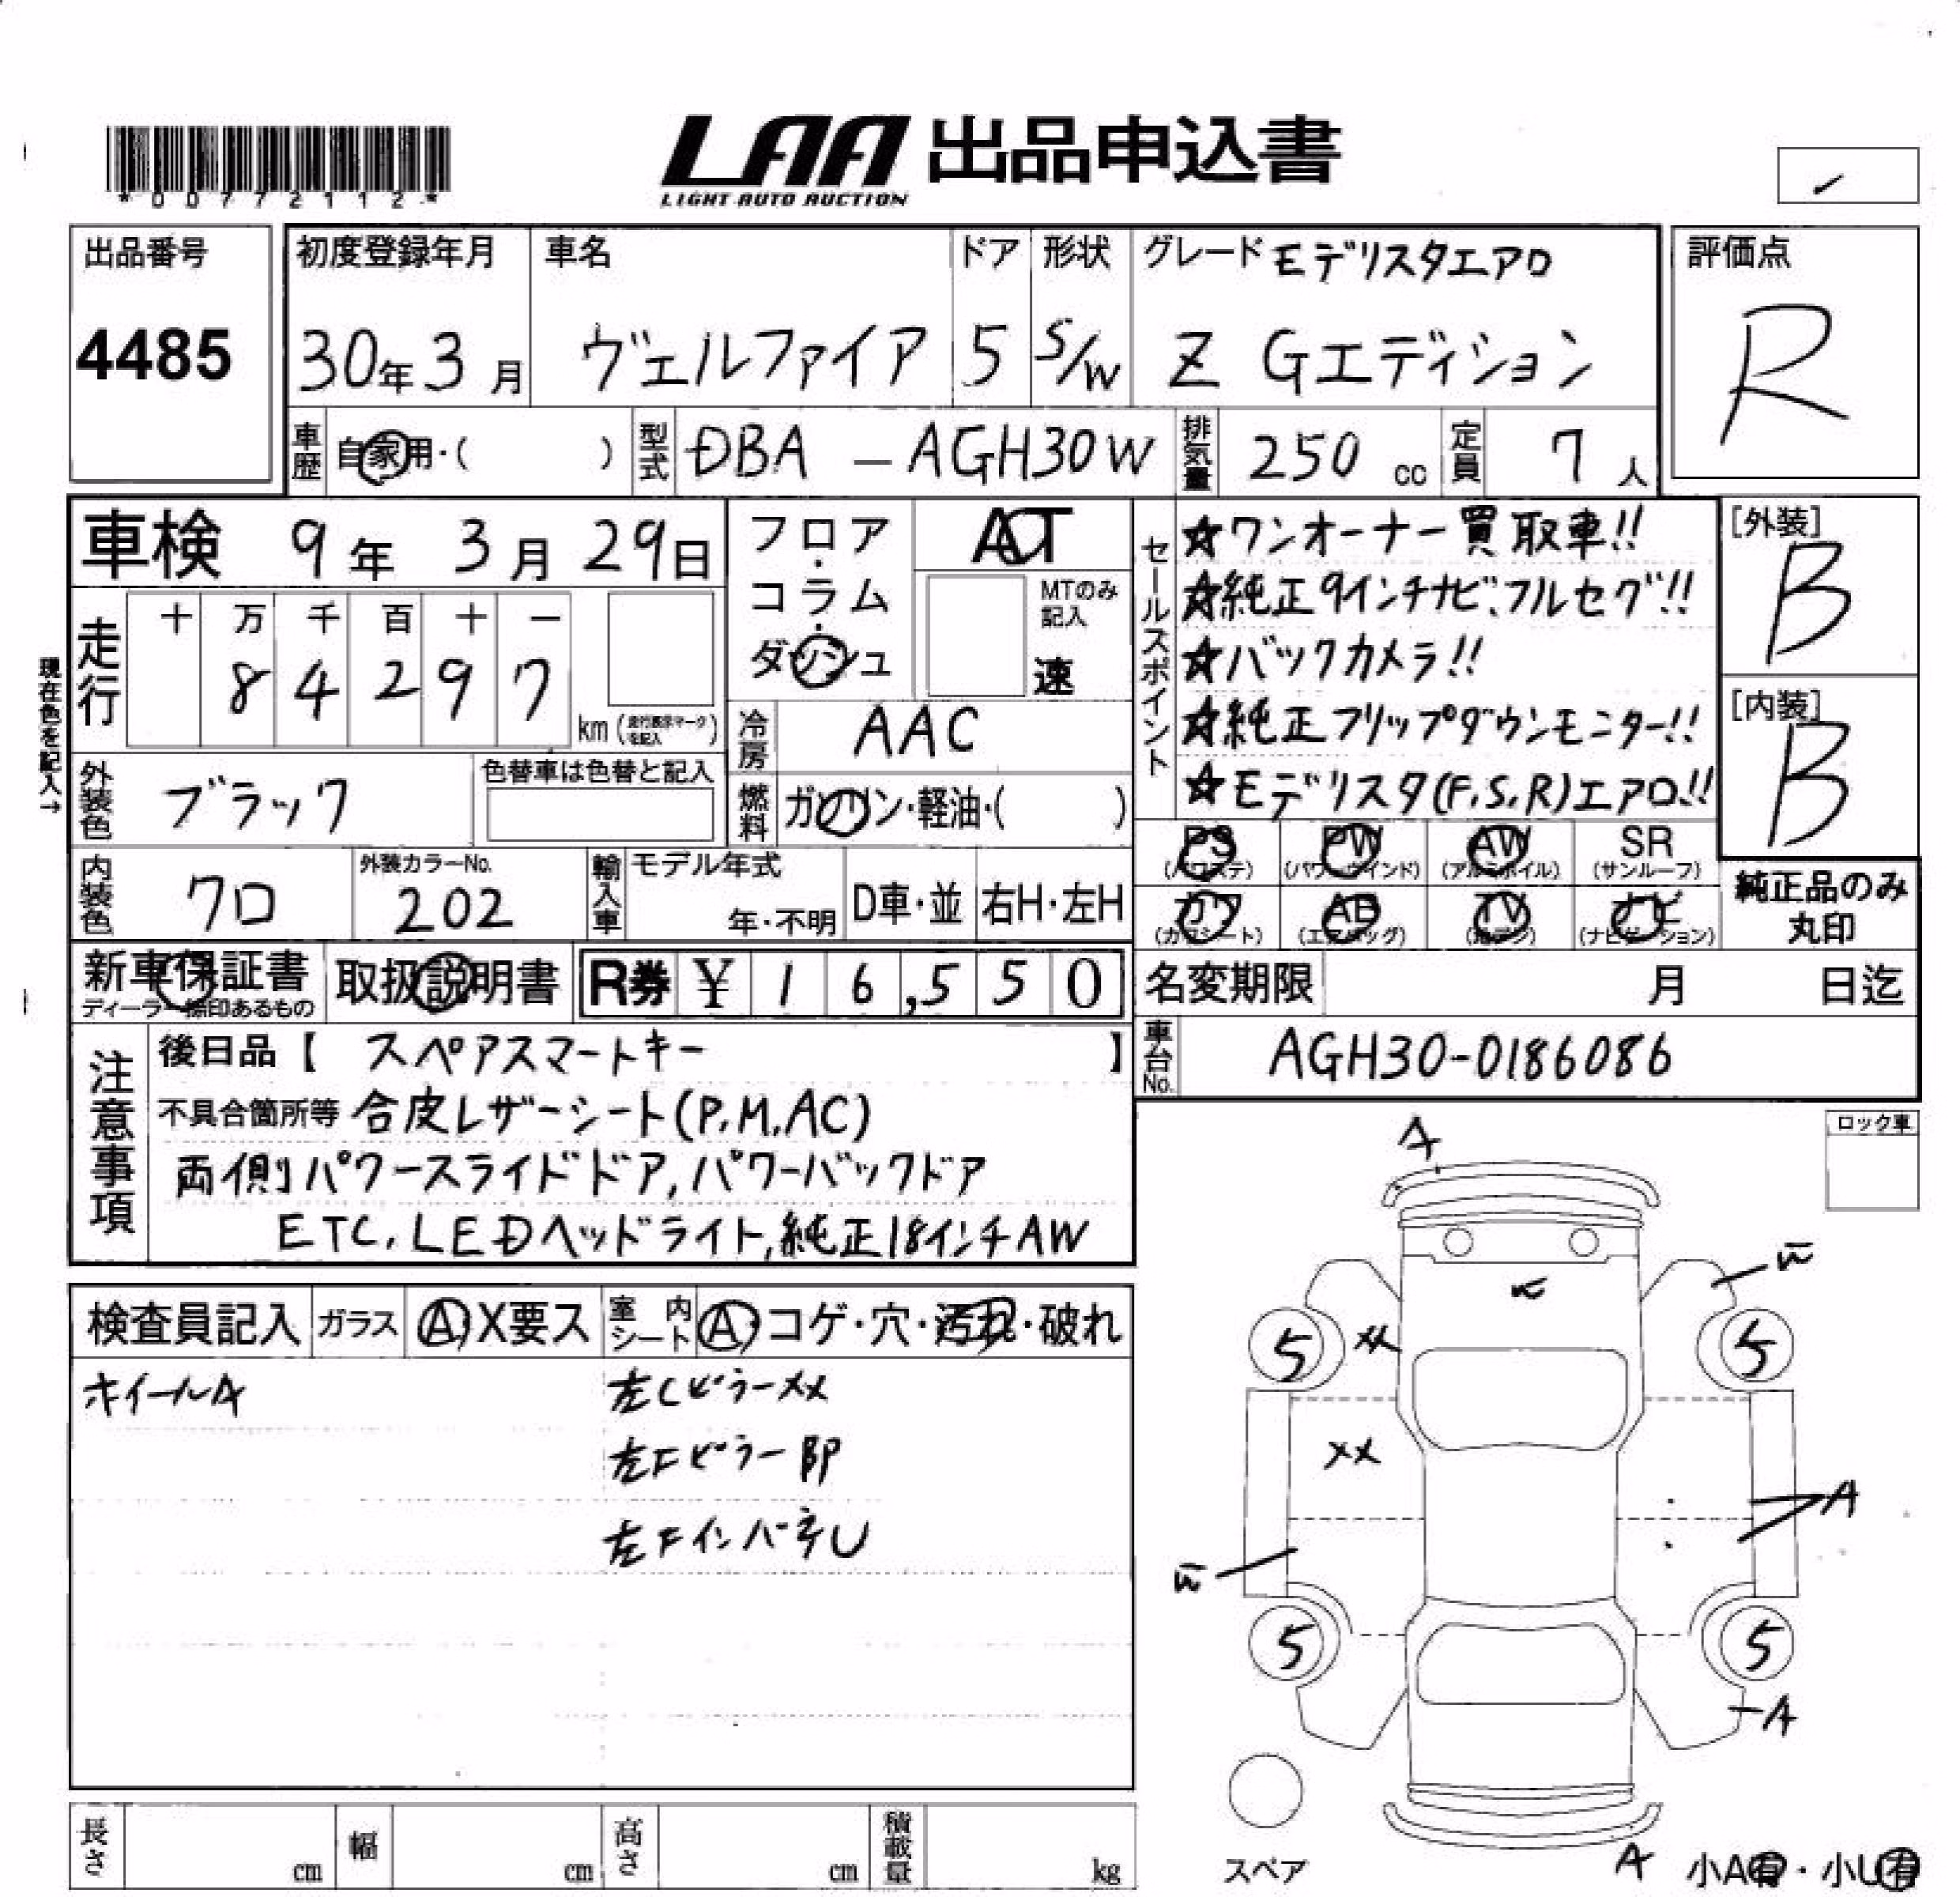 *00772112*
LAA 出品申込書
LIGHT AUTO AUCTION
出品番号
4485
初度登録年月
30年3月
車名
ヴェルファイア
ドア
5
形状
S/W
グレード モデリスタエアロ
Z Gエディション
評価点
R
車歴
自家用・( )
型式
DBA - AGH30W
排気量
250 cc
定員
7人
車検 9年 3月 29日
現在色を記入→
走行
十 万 千 百 十 一
8 4 2 9 7
km (走行表示マークを記入)
フロア・コラム・ダッシュ
AT
MTのみ記入
速
冷房
AAC
外装色
ブラック
色替車は色替と記入
燃料
ガソリン・軽油・( )
内装色
クロ
外装カラーNo.
202
輸入車
モデル年式
年・不明
D車・並
右H・左H
セールスポイント
☆ワンオーナー買取車!!
☆純正9インチナビ、フルセグ!!
☆バックカメラ!!
☆純正フリップダウンモニター!!
☆モデリスタ(F.S.R)エアロ!!
[外装]
B
[内装]
B
PS
(パワステ)
PW
(パワーウインド)
AW
(アルミホイル)
SR
(サンルーフ)
カワ
(カワシート)
AB
(エアバッグ)
TV
(地デジ)
ナビ
(ナビゲーション)
純正品のみ
丸印
新車保証書
ディーラー捺印あるもの
取扱説明書
R券 ¥16,550
名変期限 月 日迄
車台No.
AGH30-0186086
注意事項
後日品【 スペアスマートキー 】
不具合箇所等 合皮レザーシート(P.M.AC)
両側パワースライドドア,パワーバックドア
ETC.LEDヘッドライト,純正18インチAW
ロック車
検査員記入
ガラス
A X要ス
室内シート
A コゲ・穴・汚れ・破れ
ホイールA
左Cピラーxx
左Fピラー部
左FインパネU
A
xx
5
5
xx
A
5
5
A
スペア
A
小A有・小U有
長さ cm
幅 cm
高さ cm
積載量 kg